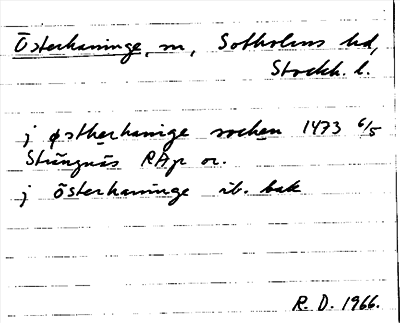 Österhaninge, sn, Sotholms hd,
Stockh. l.
j østherhaninge sochen 1473 6/5
Strängnäs RAp or.
j österhaninge ib. bak
R. D. 1966.